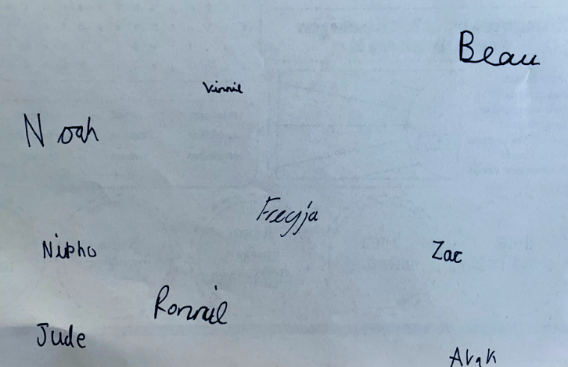 Beau
Vinnie
Noah
Freyja
Nipho
Zac
Ronnie
Jude